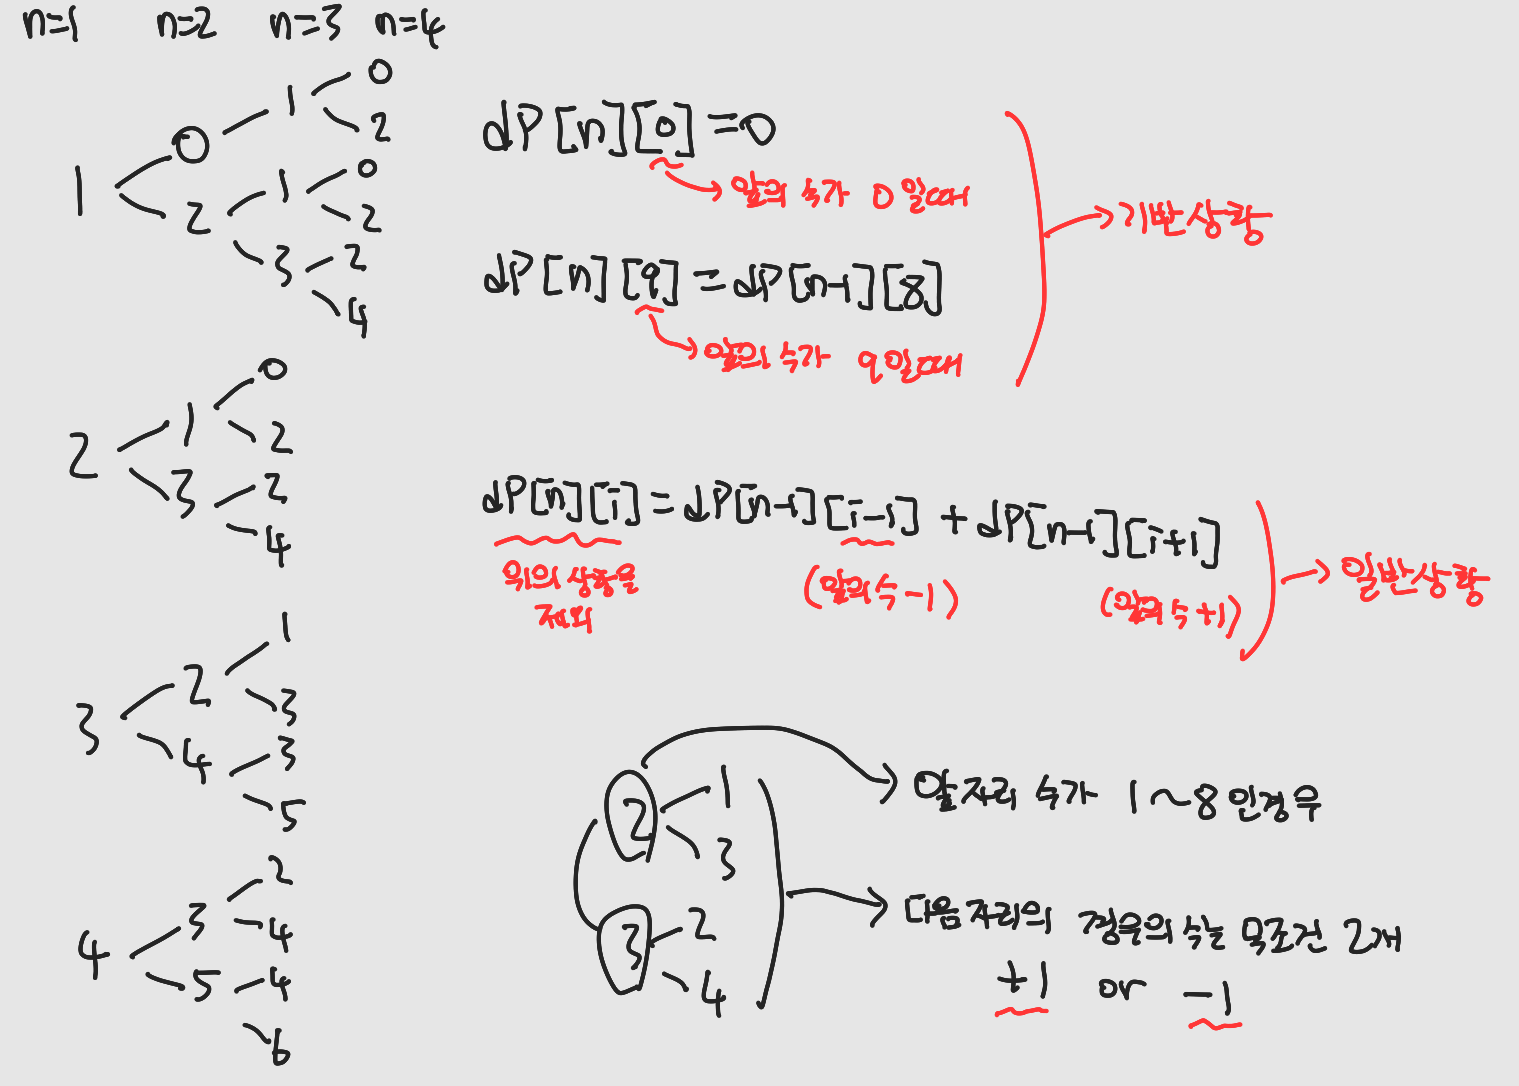 n=1 n=2 n=3 n=4
1 0 1 0
2
2 1 0
2
3 2
4
2 1 0
2
3 2
4
3 2 1
3
4 3
5
4 3 2
4
5 4
6
dP[n][0]=0
앞의 수가 0일때
dP[n][9]=dP[n-1][8]
앞의 수가 9일때
기반상황
dP[n][i]=dP[n-1][i-1]+dP[n-1][i+1]
위의 상황을
제외
(앞의 수-1)
(앞의 수+1)
일반상황
2 1
3
3 2
4
앞자리 수가 1~8인경우
다음자리의 경우의 수는 무조건 2개
+1 or -1